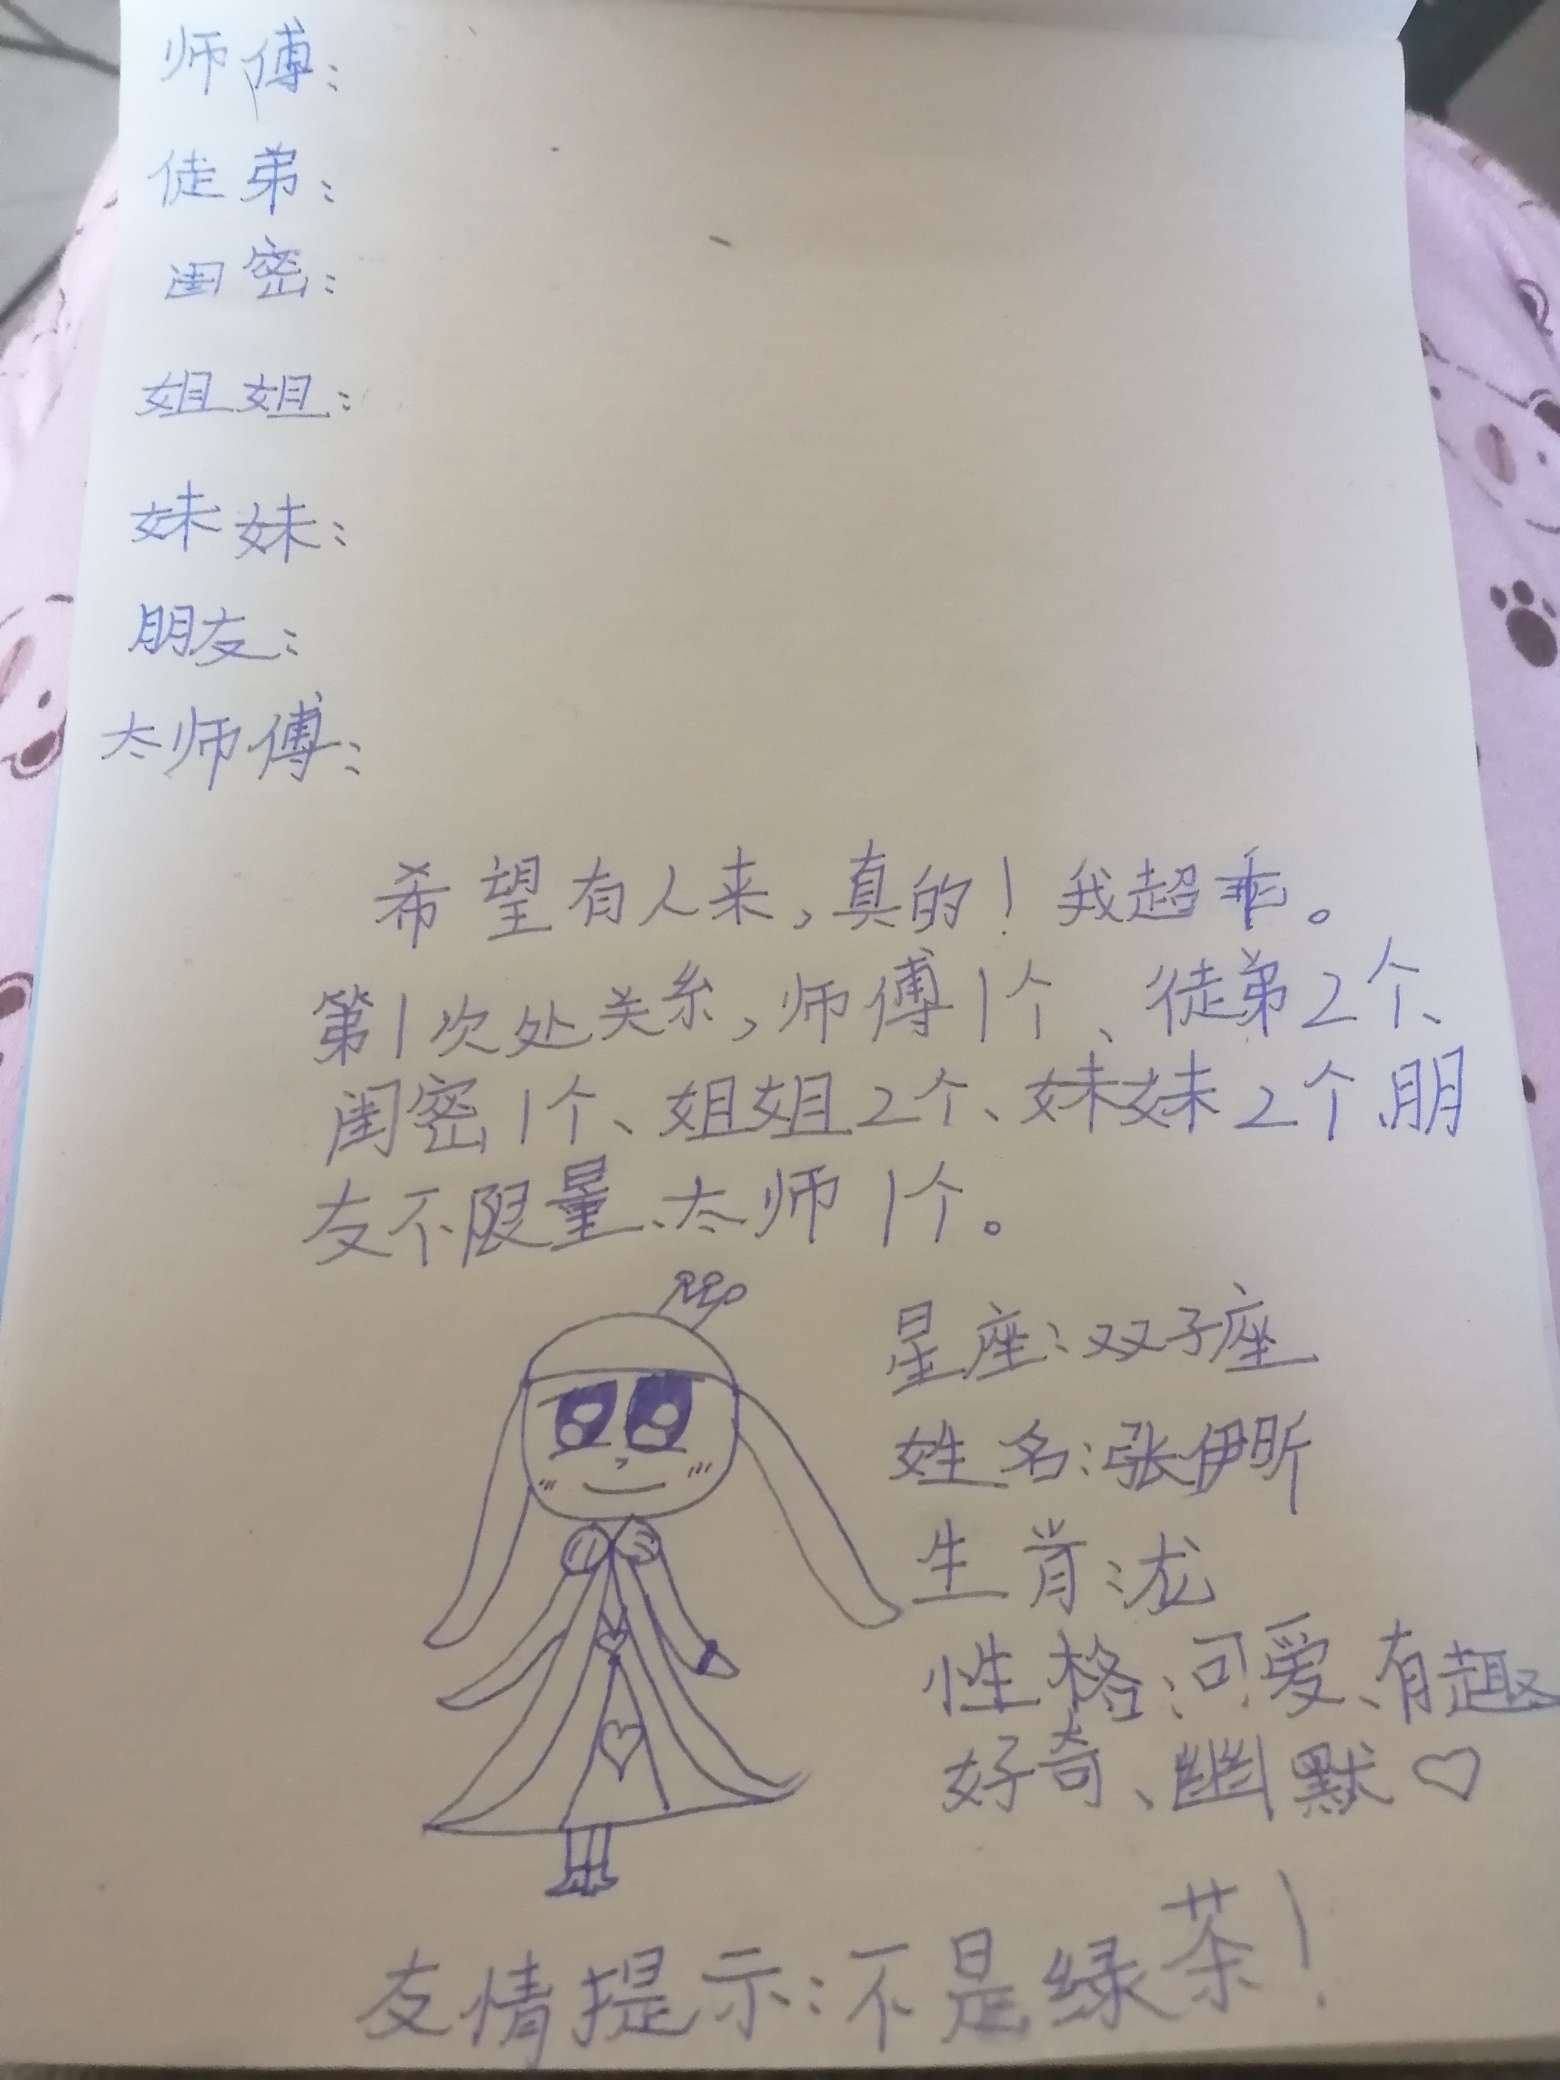 师傅：
徒弟：
闺密：
姐姐：
妹妹：
朋友：
太师傅：
希望有人来，真的！我超乖。
第1次处关系，师傅1个、徒弟2个、
闺密1个、姐姐2个、妹妹2个、朋
友不限量、太师1个。
星座：双子座
姓名：张伊昕
生肖：龙
性格：可爱、有趣
好奇、幽默♡
友情提示：不是绿茶！